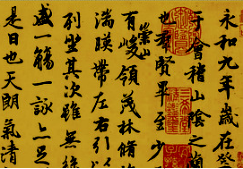 永和九年歲在癸
于會稽山陰之蘭
也羣賢畢至少
有崇山峻領茂林脩
湍暎帶左右引以
列坐其次雖無絲
盛一觴一詠上足
是日也天朗氣清